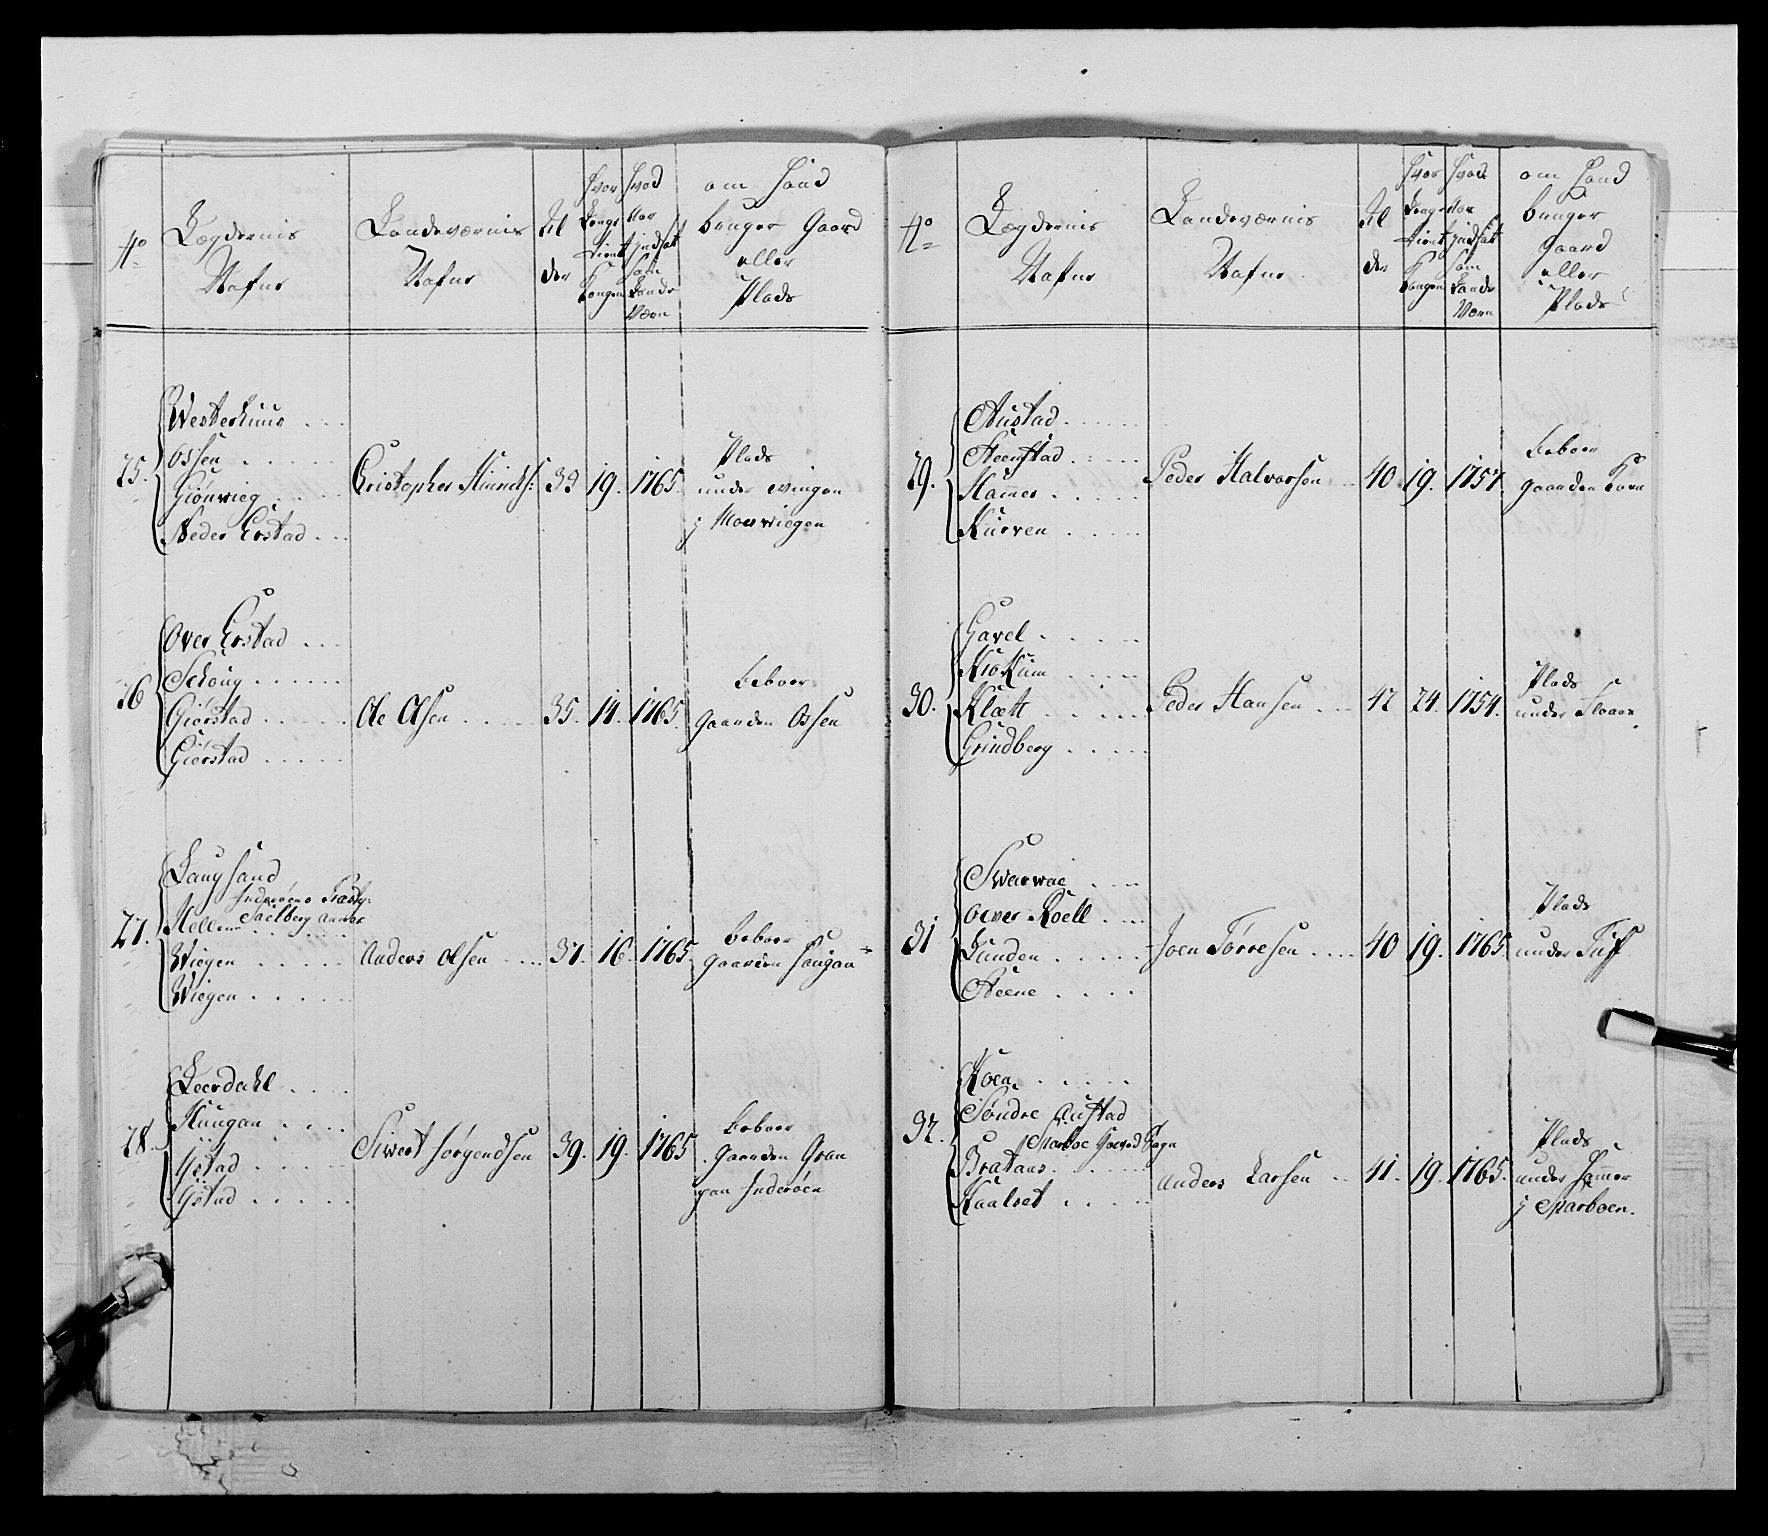 No
Lægdernis
Nafne
Landeværnis
Nafne
Al
der
Hvor
Længe
tient
Kongen
Hvad
Aar
jndsat
som
Lande
Værn
om Hand
bruger Gaard
eller
Plads
25.
Westerhuus
Ossen
Giönwieg
Neder Erstad
Cristopher Hinrichs:
39
19.
1765.
Plads
under Wingen
j Moswiegen
26
Over Erstad
Schoug
Giörstad
Giörstad
Ole Olsen
35.
14.
1765.
beboer
gaarden Ossen
27.
Langhand
Inderøens Præstg:
Hellem Saelberg annex
Wiegen
Wiegen
Anders Olsen
37.
16.
1765.
beboer
gaarden Haugan
28.
Leerdahl
Haugan
Ystad
Ystad
Siwert Jörgendsen
39.
19.
1765
beboer
gaarden Gran
paa Inderöen
No
Lægdernis
Nafne
Landeværnis
Nafne
Al
der
Hvor
Længe
tient
Kongen
Hvad
Aar
jndsat
som
Lande
Værn
om Hand
bruger
Gaard
eller
Plads
29.
Austad
Steenstad
Hammer
Kurven
Peder Halvorsen
40
19.
1757.
beboer
gaarden
30.
Gavel
Klætt
Grindberg
Peder Hansen
42
24.
1754.
Plads
under
31
Swarwae
Over Roell
Lunden
Steene
Joen Törresen
40
19.
1765.
Plads
under Tuff
32.
Hoen
Söndre Austad
Sparboe Sogn
Brataas
Kaalset
Anders Larsen
41.
19.
1765.
Plads
under Hammer
j Sparboen.